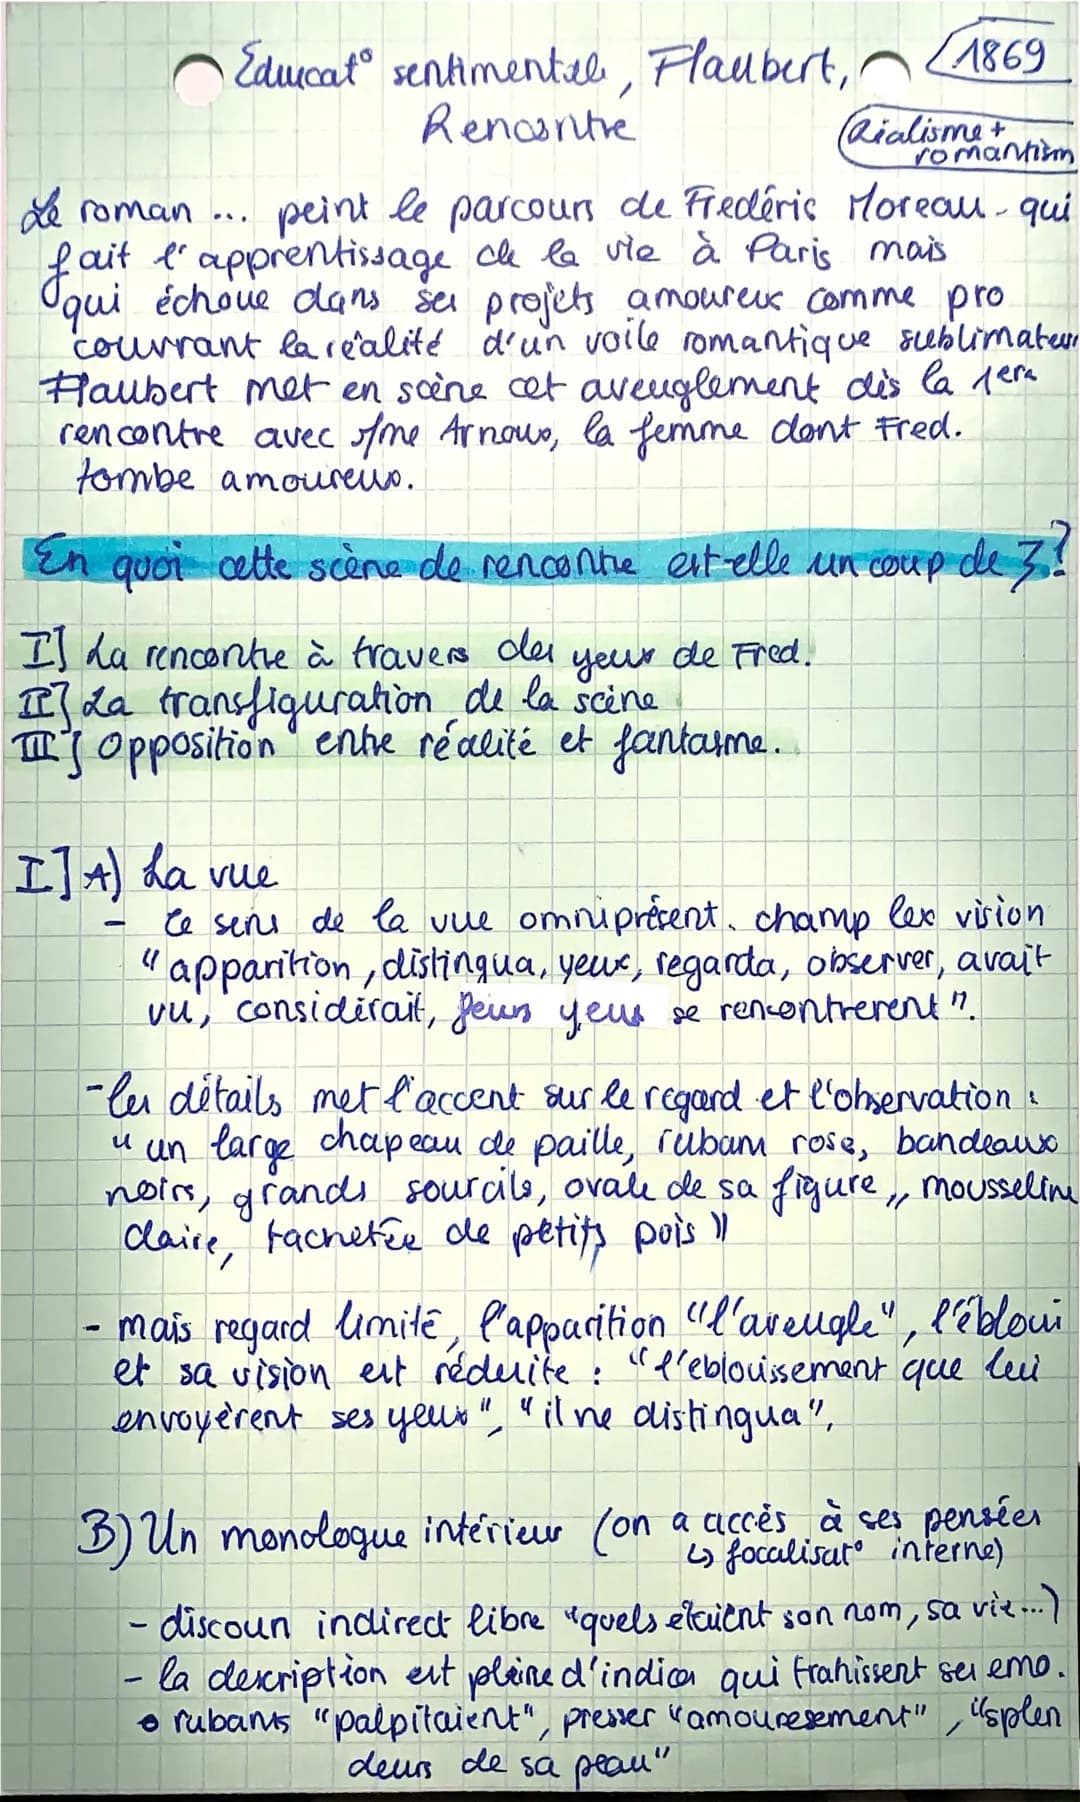 Educat° sentimentale, Flaubert, 1869
Rencontre
Réalisme +
romantism
Le roman ... peint le parcours de Frédéric Moreau - qui
fait l'apprentissage de la vie à Paris mais
qui échoue dans ses projets amoureux comme pro
couvrant la réalité d'un voile romantique sublimateur
Flaubert met en scène cet aveuglement dès la 1ère
rencontre avec Mme Arnoux, la femme dont Fred.
tombe amoureux.
En quoi cette scène de rencontre est-elle un coup de 3?
I] La rencontre à travers des yeux de Fred.
II] La transfiguration de la scène
III] Opposition entre réalité et fantasme.
I] A) La vue
- Le sens de la vue omniprésent. champ lex vision
"apparition, distingua, yeux, regarda, observer, avait
vu, considérait, leurs yeux se rencontrerent".
- les détails met l'accent sur le regard et l'observation :
"un large chapeau de paille, rubans rose, bandeaux
noirs, grands sourcils, ovale de sa figure,, mousseline
claire, tachetée de petits pois"
- mais regard limité, l'apparition "l'aveugle", l'ébloui
et sa vision est réduite : "l'eblouissement que lui
envoyèrent ses yeux", "il ne distingua",
B) Un monologue intérieur (on a accès à ses pensées
↳ focalisat° interne)
- discours indirect libre "quels étaient son nom, sa vie...)
- la description est pleine d'indices qui trahissent ses emo.
• rubans "palpitaient", presser "amouresement", "splen
deurs de sa peau"